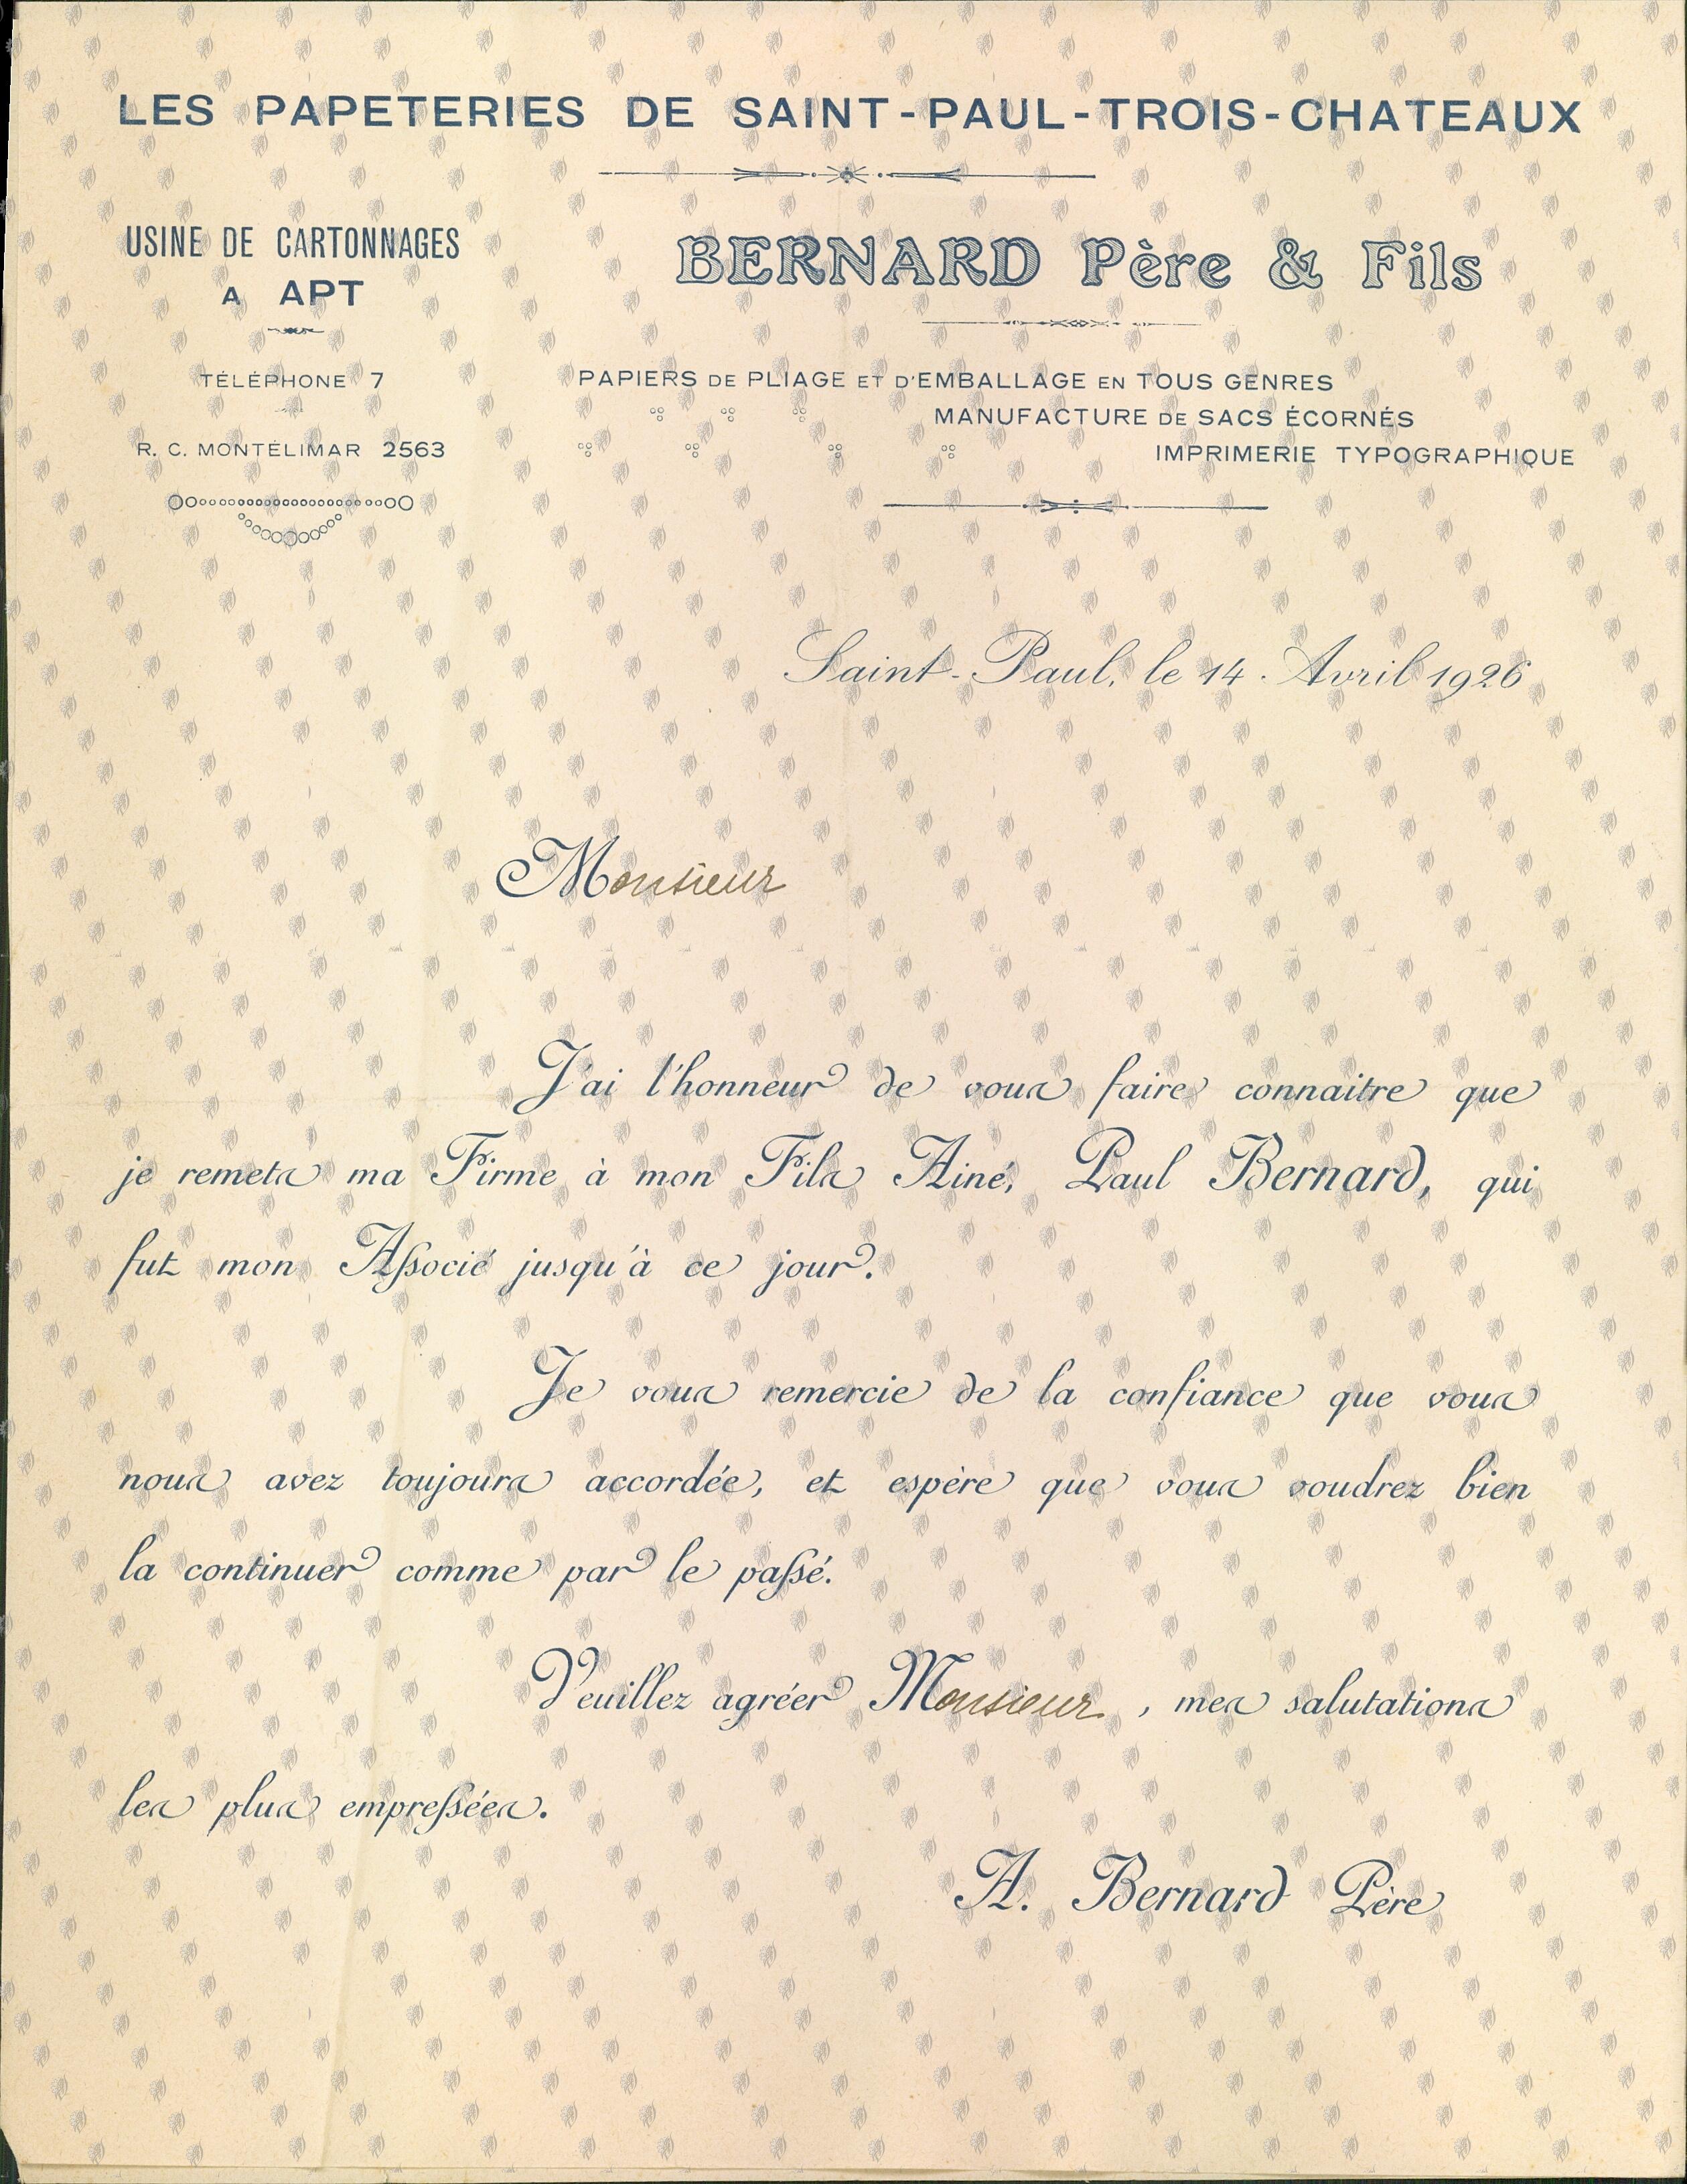 LES PAPETERIES DE SAINT-PAUL-TROIS-CHATEAUX
USINE DE CARTONNAGES
A APT
TÉLÉPHONE 7
R. C. MONTÉLIMAR 2563
BERNARD Père & Fils
PAPIERS DE PLIAGE ET D'EMBALLAGE EN TOUS GENRES
MANUFACTURE DE SACS ÉCORNÉS
IMPRIMERIE TYPOGRAPHIQUE
Saint-Paul, le 14 Avril 1926
Monsieur
J'ai l'honneur de vous faire connaitre que
je remets ma Firme à mon Fils Ainé, Paul Bernard, qui
fut mon Associé jusqu'à ce jour.
Je vous remercie de la confiance que vous
nous avez toujours accordée, et espère que vous voudrez bien
la continuer comme par le passé.
Veuillez agréer Monsieur, mes salutations
les plus empressées.
A. Bernard Père